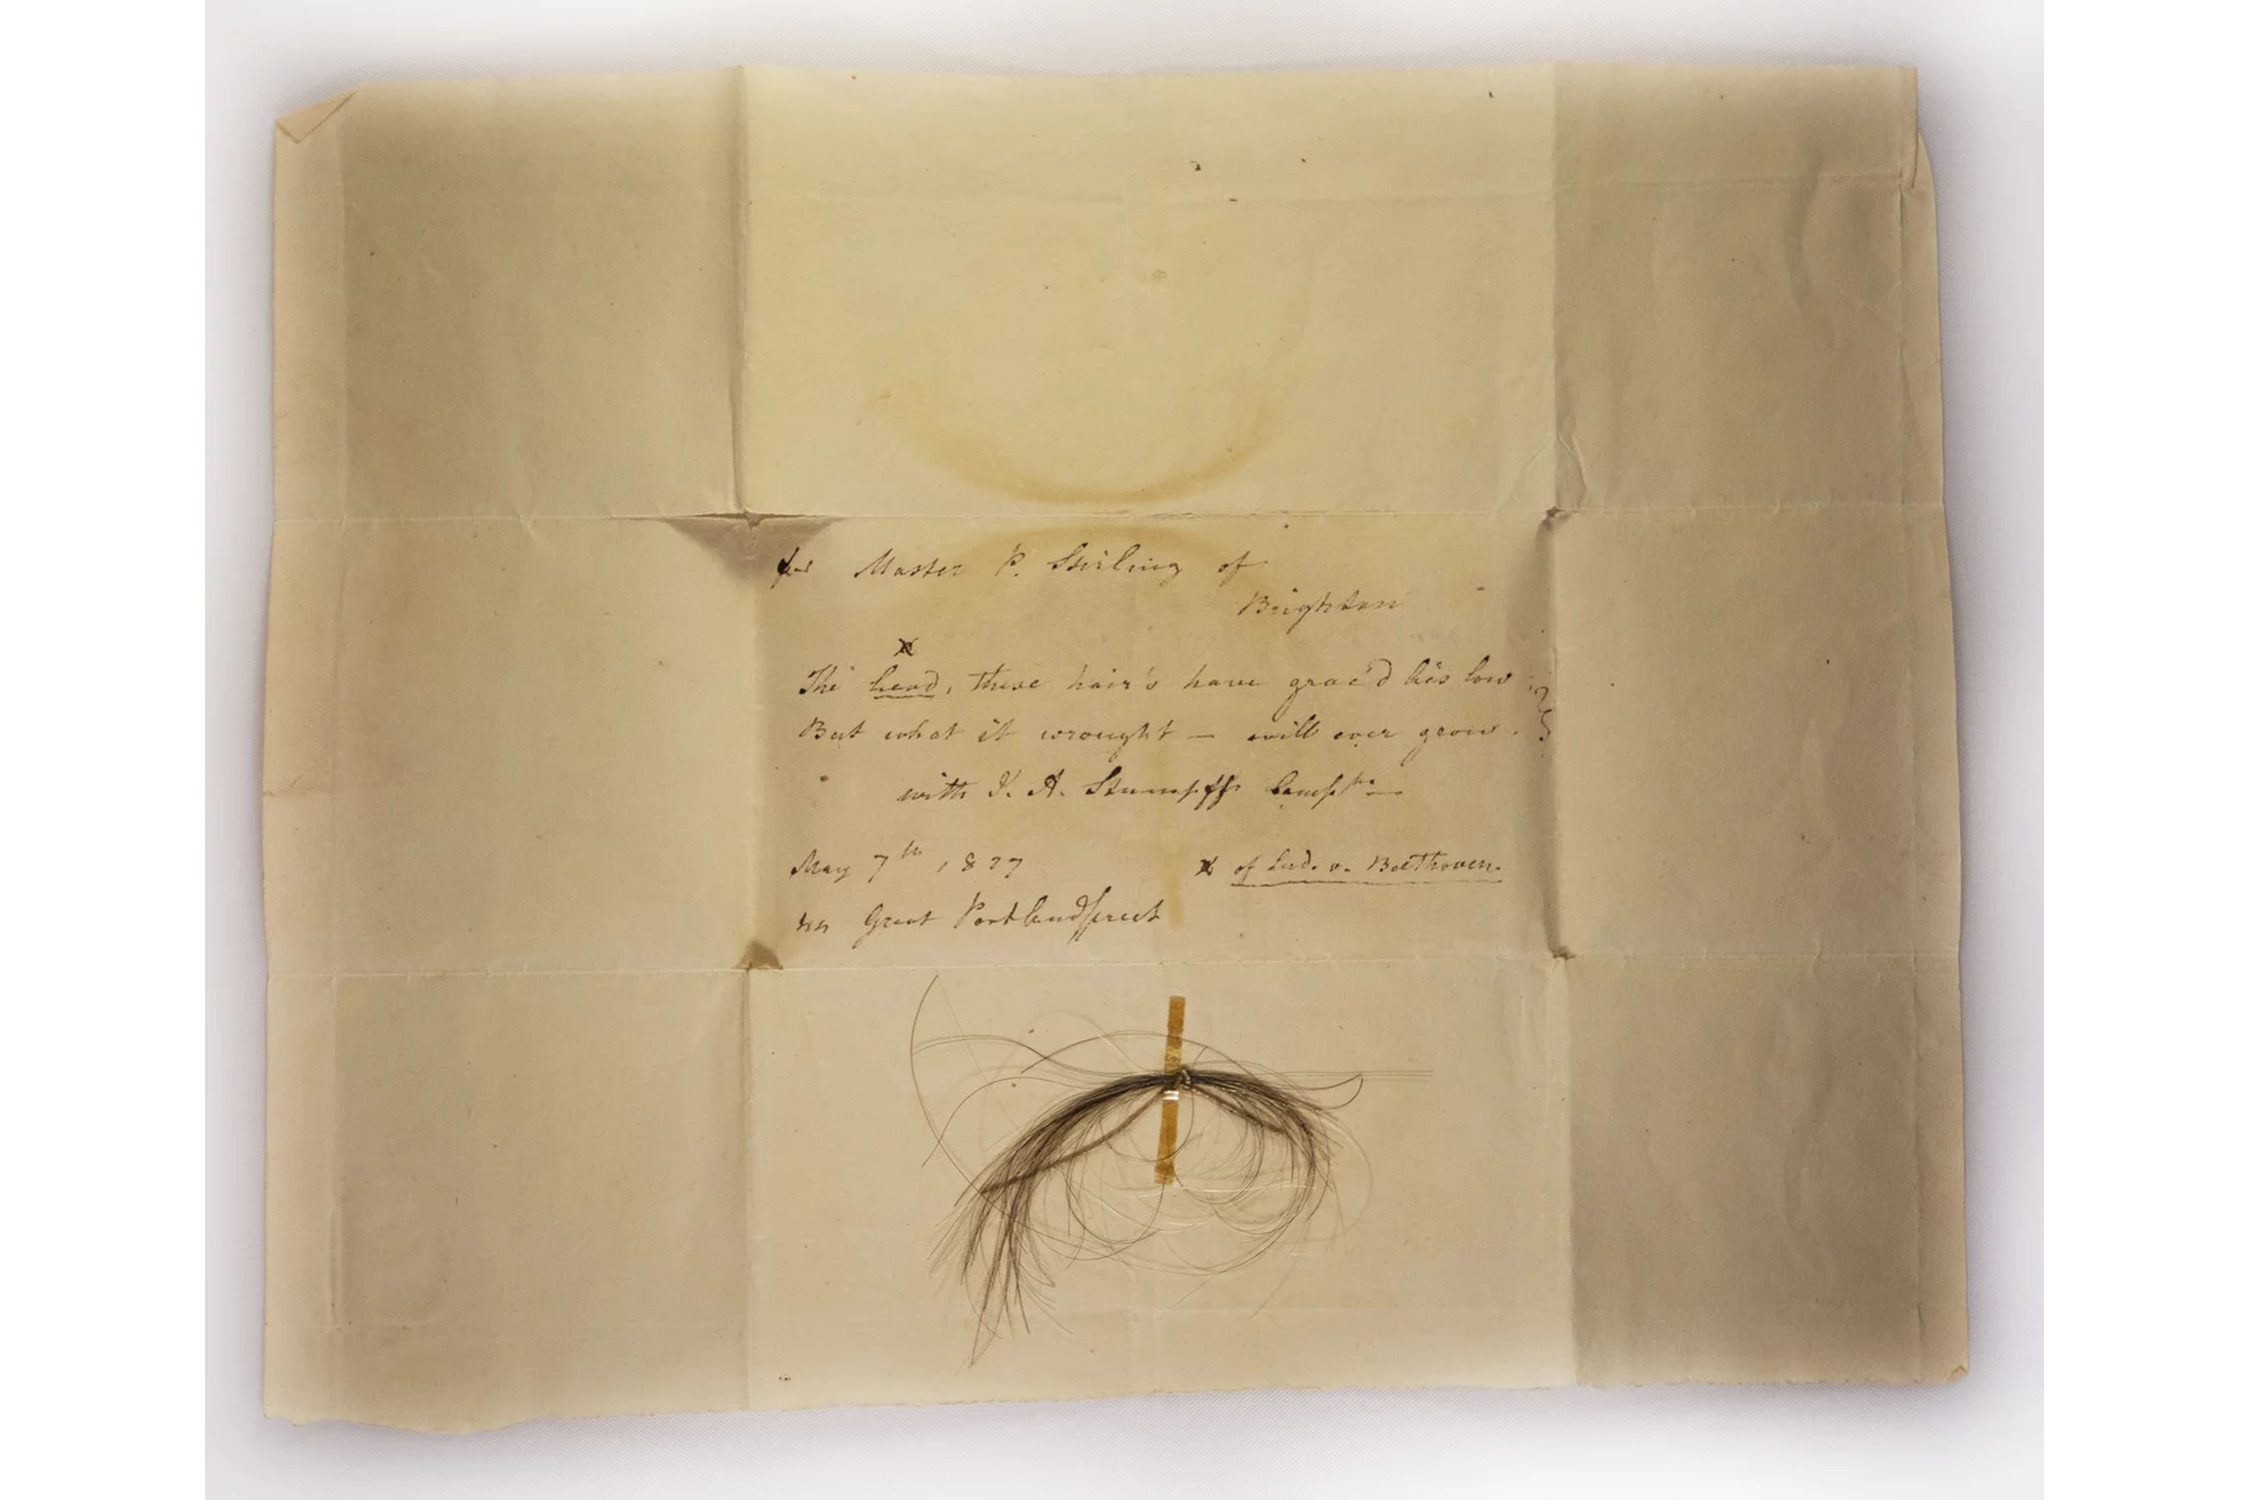 for Master P. Stirling of
Brighton
x
The head, these hair's have grac'd lies low
But what it wrought — will ever grow.
with J. A. Stumpff
May 7th 1827
x of Lud. v. Beethoven.
44 Great Portlandstreet